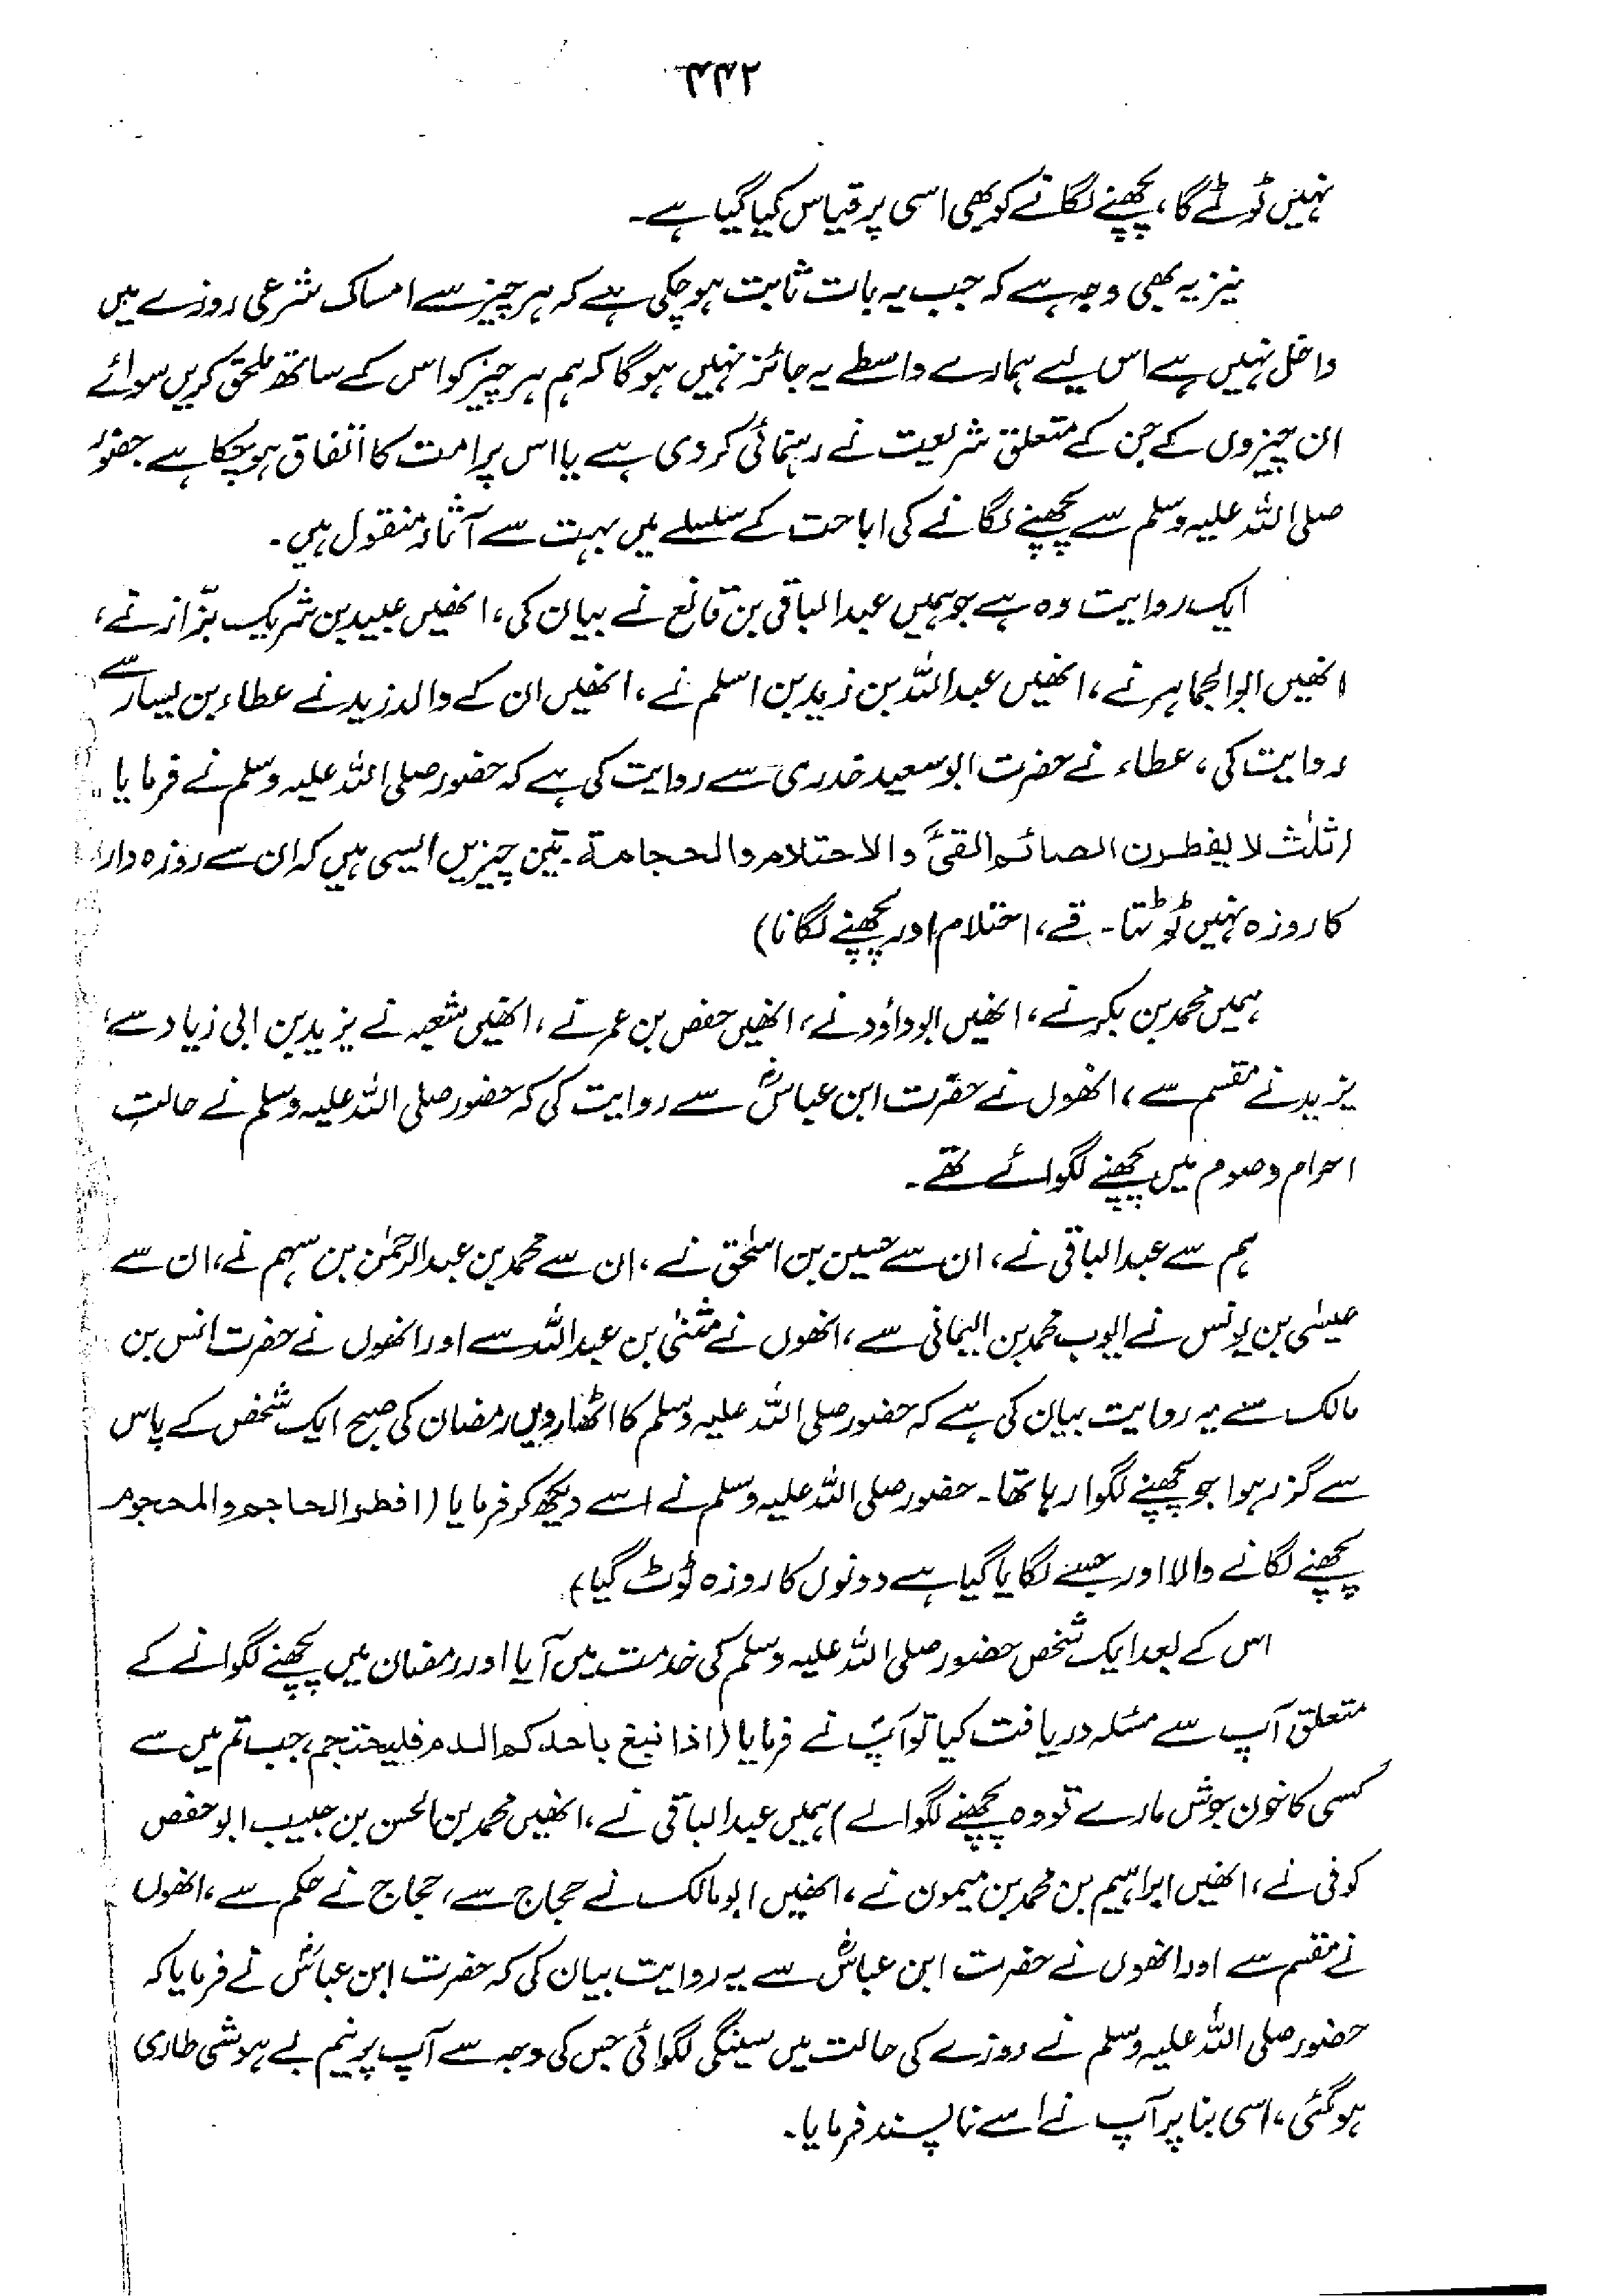 ۴۴۲
نہیں ٹوٹے گا، پچھنے لگانے کو بھی اسی پر قیاس کیا گیا ہے۔
نیز یہ بھی وجہ ہے کہ جب یہ بات ثابت ہو چکی ہے کہ ہر چیز سے امساک شرعی روزے میں
داخل نہیں ہے اس لیے ہمارے واسطے یہ جائز نہیں ہوگا کہ ہم ہر چیز کو اس کے ساتھ ملحق کریں سوائے
ان چیزوں کے جن کے متعلق شریعت نے رہنمائی کر دی ہے یا اس پر امت کا اتفاق ہو چکا ہے حضورؐ
صلی اللہ علیہ وسلم سے پچھنے لگانے کی اباحت کے سلسلے میں بہت سے آثار منقول ہیں۔
ایک روایت وہ ہے جو ہمیں عبدالباقی بن قانع نے بیان کی، انھیں عبید بن شریک بزّاز نے،
انھیں ابوالجماہر نے، انھیں عبداللہ بن زید بن اسلم نے، انھیں ان کے والد زید نے عطاء بن یسار سے
روایت کی، عطاء نے حضرت ابوسعید خدری سے روایت کی ہے کہ حضور صلی اللہ علیہ وسلم نے فرمایا
(ثلٰث لا یفطرن الصائم القیٔ والاحتلام والحجامۃ۔ تین چیزیں ایسی ہیں کہ ان سے روزہ دار
کا روزہ نہیں ٹوٹتا۔ قے، احتلام اور پچھنے لگانا)
ہمیں محمد بن بکر نے، انھیں ابوداؤد نے، انھیں حفص بن عمر نے، انھیں شعبہ نے یزید بن ابی زیاد سے،
یزید نے مقسم سے، انھوں نے حضرت ابن عباسؓ سے روایت کی کہ حضور صلی اللہ علیہ وسلم نے حالتِ
احرام و صوم میں پچھنے لگوائے تھے۔
ہم سے عبدالباقی نے، ان سے حسین بن اسحٰق نے، ان سے محمد بن عبدالرحمٰن بن سہم نے، ان سے
عیسٰی بن یونس نے ایوب محمد بن الیمانی سے، انھوں نے مثنیٰ بن عبداللہ سے اور انھوں نے حضرت انس بن
مالک سے یہ روایت بیان کی ہے کہ حضور صلی اللہ علیہ وسلم کا اٹھارویں رمضان کی صبح ایک شخص کے پاس
سے گزر ہوا جو پچھنے لگوا رہا تھا۔ حضور صلی اللہ علیہ وسلم نے اسے دیکھ کر فرمایا (افطر الحاجم والمحجوم
پچھنے لگانے والا اور جسے لگایا گیا ہے دونوں کا روزہ ٹوٹ گیا)
اس کے بعد ایک شخص حضور صلی اللہ علیہ وسلم کی خدمت میں آیا اور رمضان میں پچھنے لگوانے کے
متعلق آپ سے مسئلہ دریافت کیا تو آپؐ نے فرمایا (اذا نبغ باحدکم الدم فلیحتجم، جب تم میں سے
کسی کا خون جوش مارے تو وہ پچھنے لگوالے) ہمیں عبدالباقی نے، انھیں محمد بن الحسن بن حبیب ابو حفص
کوفی نے، انھیں ابراہیم بن محمد بن میمون نے، انھیں ابو مالک نے حجاج سے، حجاج نے حکم سے، انھوں
نے مقسم سے اور انھوں نے حضرت ابن عباسؓ سے یہ روایت بیان کی کہ حضرت ابن عباسؓ نے فرمایا کہ
حضور صلی اللہ علیہ وسلم نے روزے کی حالت میں سینگی لگوائی جس کی وجہ سے آپ پر نیم بے ہوشی طاری
ہوگئی، اسی بنا پر آپ نے اسے ناپسند فرمایا۔